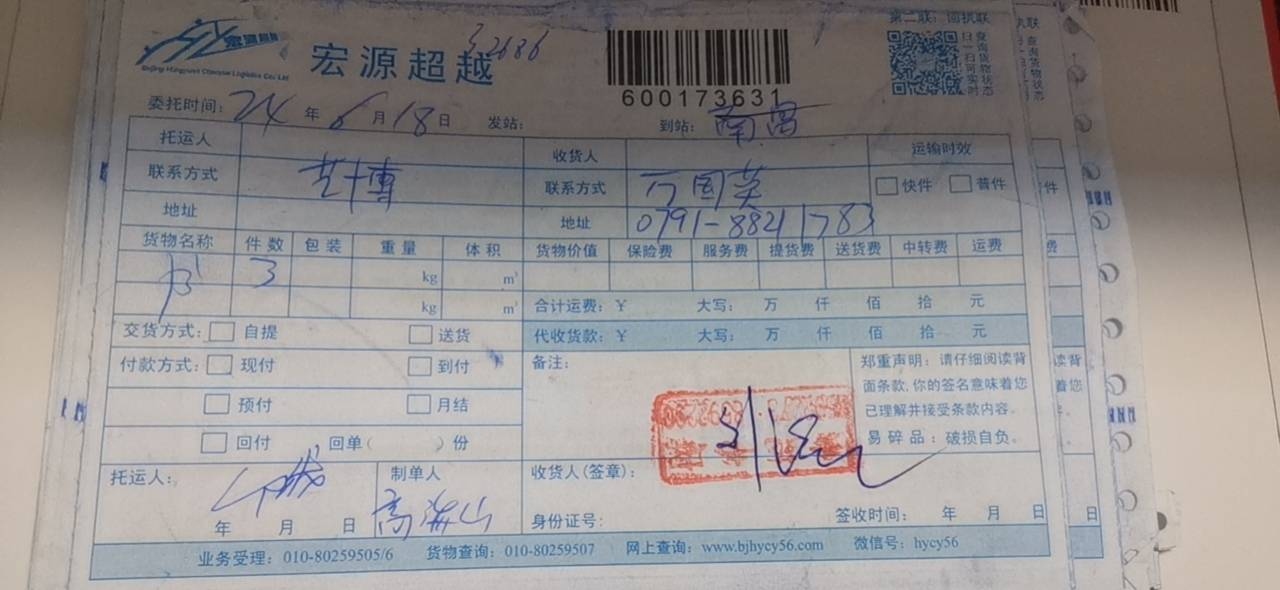 第二联：回执联
扫一扫可实时
查询货物状态
宏源超越
32686
Beijing Hongyuan Chaoyue Logistics Co., Ltd
600173631
委托时间：24年6月18日 发站： 到站：南昌
托运人 收货人 运输时效
联系方式 艺博 联系方式 万国英 快件 普件
地址 地址 0791-88211783
货物名称 件数 包装 重量 体积 货物价值 保险费 服务费 提货费 送货费 中转费 运费
书 3 kg m³
kg m³ 合计运费：¥ 大写： 万 仟 佰 拾 元
交货方式： 自提 送货 代收货款：¥ 大写： 万 仟 佰 拾 元
付款方式： 现付 到付 备注：
预付 月结
回付 回单（ ）份
郑重声明：请仔细阅读背
面条款,你的签名意味着您
已理解并接受条款内容。
易碎品：破损自负。
托运人： 制单人 收货人(签章)：
年 月 日 高海山 身份证号： 签收时间： 年 月 日
业务受理：010-80259505/6 货物查询：010-80259507 网上查询：www.bjhycy56.com 微信号：hycy56